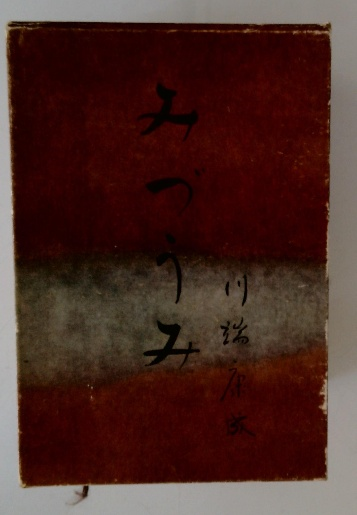 みづうみ
川端康成